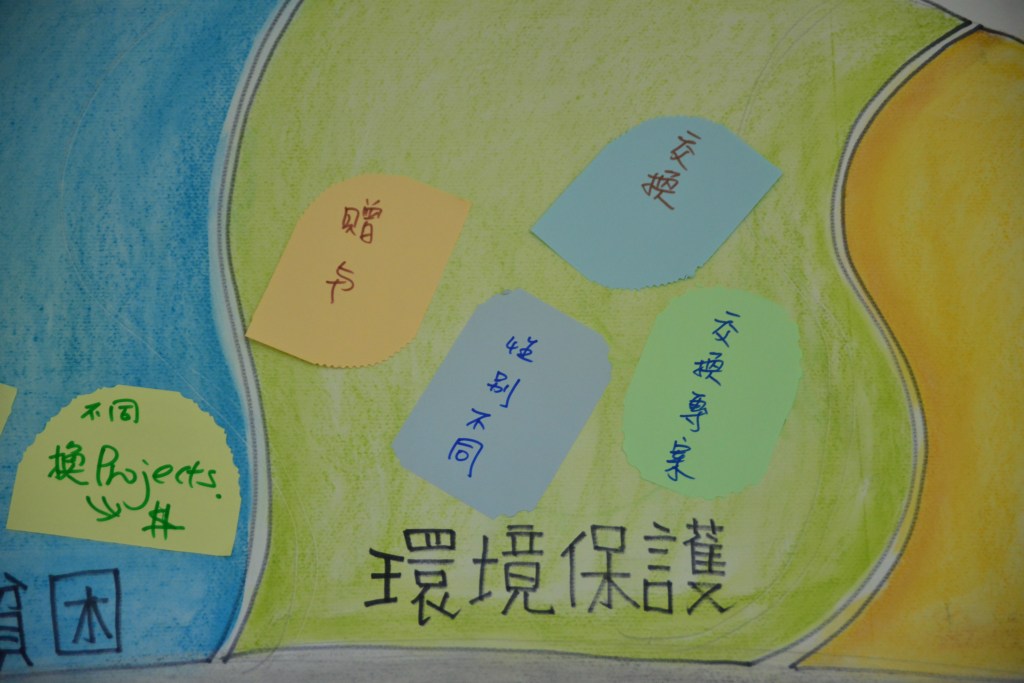 交換
贈与
交換專案
性別不同
不同
換Projects.
環境保護
貧困